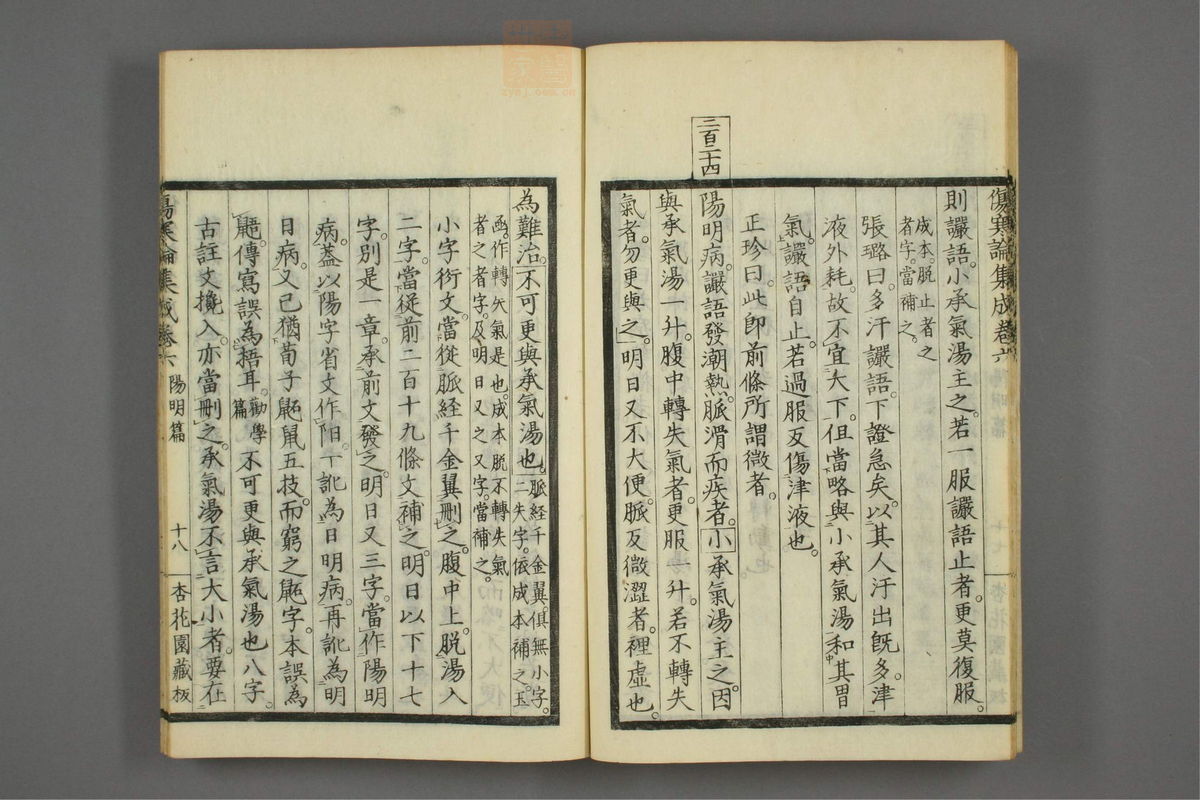 二百二十四
傷寒論集成卷六
則讝語。小承氣湯主之。若一服讝語止者。更莫復服。
成本。脫止者之
者字。當補之。
張璐曰。多汗讝語。下證急矣。以其人汗出旣多。津
液外耗。故不宜大下。但當略與小承氣湯。和其胃
氣。讝語自止。若過服反傷津液也。
正珍曰。此卽前條所謂微者。
陽明病。讝語發潮熱。脈滑而疾者。小承氣湯主之。因
與承氣湯一升。腹中轉失氣者。更服一升。若不轉失
氣者。勿更與之。明日又不大便。脈反微澀者。裡虛也。
為難治。不可更與承氣湯也。
脈經千金翼。俱無小字。
二失字。依成本補之。玉
函。作轉矢氣是也。成本脫不轉失氣
者之者字。及明日又之又字。當補之。
小字衍文。當從脈經千金翼刪之。腹中上。脫湯入
二字。當從前二百十九條文補之。明日以下十七
字。別是一章。承前文發之。明日又三字。當作陽明
病。蓋以陽字省文作阳。一訛為日明病。再訛為明
日病。又已猶荀子鼫鼠五技。而窮之鼫字。本誤為
鼯。傳寫誤為梧耳。勸學篇不可更與承氣湯也八字。
古註文攙入。亦當刪之。承氣湯不言大小者。要在
傷寒論集成卷六
陽明篇
十八
杏花園藏板